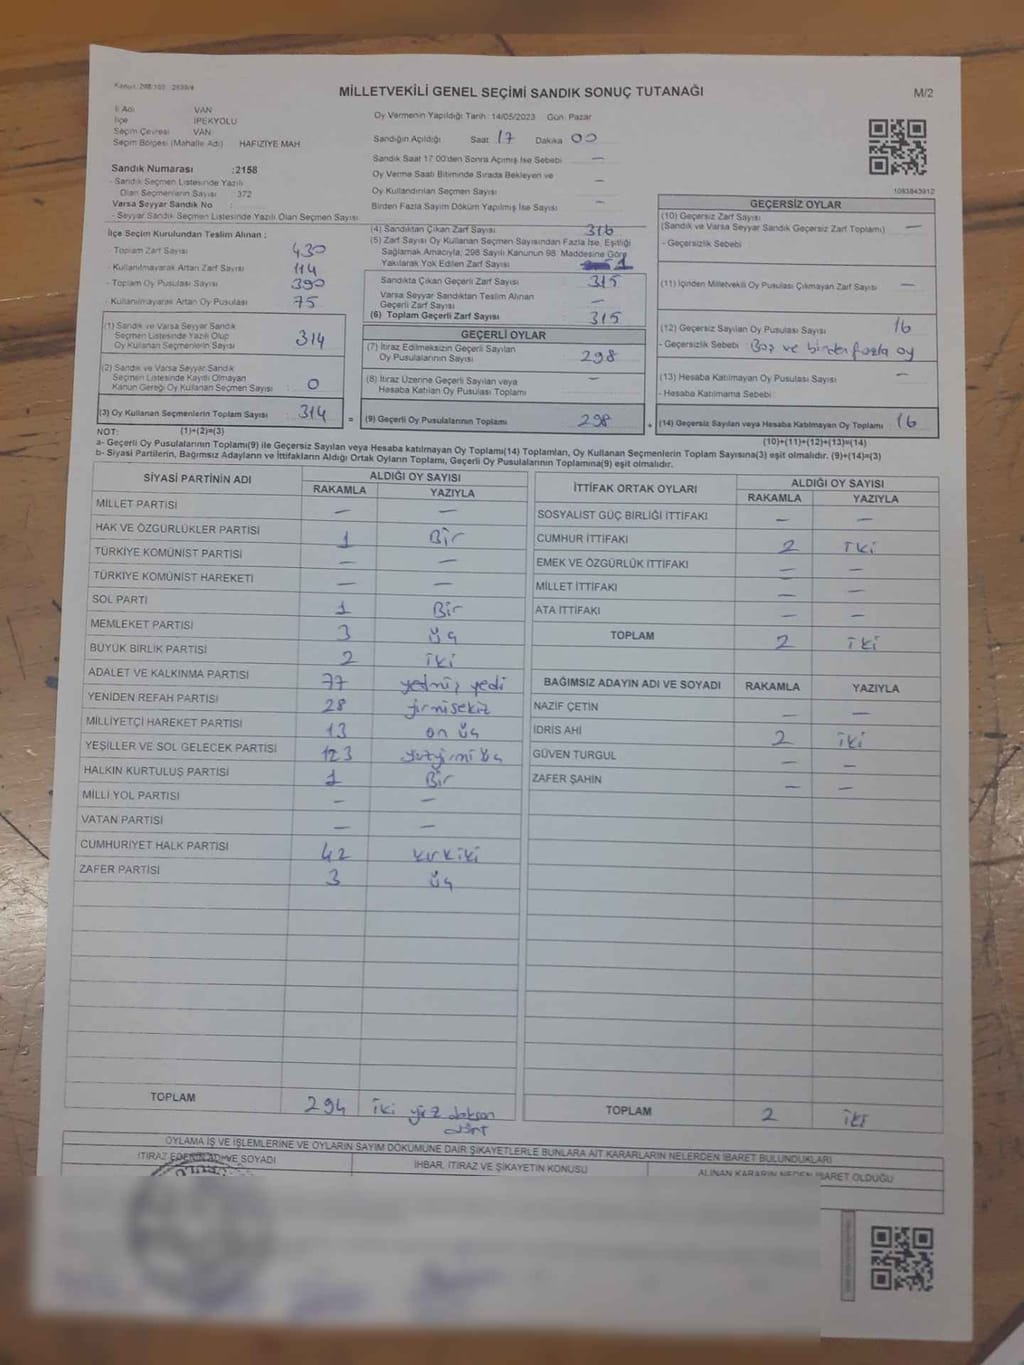 Kanun: 298.105 2839/4
MİLLETVEKİLİ GENEL SEÇİMİ SANDIK SONUÇ TUTANAĞI
M/2
İl Adı VAN
İlçe İPEKYOLU
Seçim Çevresi VAN
Seçim Bölgesi (Mahalle Adı) HAFIZIYE MAH
Sandık Numarası :2158
- Sandık Seçmen Listesinde Yazılı
Olan Seçmenlerin Sayısı : 372
Varsa Seyyar Sandık No
- Seyyar Sandık Seçmen Listesinde Yazılı Olan Seçmen Sayısı
Oy Vermenin Yapıldığı Tarih : 14/05/2023 Gün: Pazar
Sandığın Açıldığı Saat 17 Dakika 00
Sandık Saat 17:00'den Sonra Açımış İse Sebebi —
Oy Verme Saati Bitiminde Sırada Bekleyen ve
Oy Kullandırılan Seçmen Sayısı —
Birden Fazla Sayım Döküm Yapılmış İse Sayısı —
1083843912
İlçe Seçim Kurulundan Teslim Alınan :
- Toplam Zarf Sayısı 430
- Kullanılmayarak Artan Zarf Sayısı 114
- Toplam Oy Pusulası Sayısı 390
- Kullanılmayarak Artan Oy Pusulası 75
(1) Sandık ve Varsa Seyyar Sandık
Seçmen Listesinde Yazılı Olup
Oy Kullanan Seçmenlerin Sayısı 314
(2) Sandık ve Varsa Seyyar Sandık
Seçmen Listesinde Kayıtlı Olmayan
Kanun Gereği Oy Kullanan Seçmen Sayısı 0
(3) Oy Kullanan Seçmenlerin Toplam Sayısı : 314
(4) Sandıktan Çıkan Zarf Sayısı 316
(5) Zarf Sayısı Oy Kullanan Seçmen Sayısından Fazla İse, Eşitliği
Sağlamak Amacıyla, 298 Sayılı Kanunun 98. Maddesine Göre
Yakılarak Yok Edilen Zarf Sayısı 1
Sandıkta Çıkan Geçerli Zarf Sayısı 315
Varsa Seyyar Sandıktan Teslim Alınan
Geçerli Zarf Sayısı —
(6) Toplam Geçerli Zarf Sayısı 315
GEÇERLİ OYLAR
(7) İtiraz Edilmeksizin Geçerli Sayılan
Oy Pusulalarının Sayısı 298
(8) İtiraz Üzerine Geçerli Sayılan veya
Hesaba Katılan Oy Pusulaları Toplamı —
= (9) Geçerli Oy Pusulalarının Toplamı 298
GEÇERSİZ OYLAR
(10) Geçersiz Zarf Sayısı
(Sandık ve Varsa Seyyar Sandık Geçersiz Zarf Toplamı) —
- Geçersizlik Sebebi
(11) İçinden Milletvekili Oy Pusulası Çıkmayan Zarf Sayısı —
(12) Geçersiz Sayılan Oy Pusulası Sayısı 16
- Geçersizlik Sebebi Boş ve birden fazla oy
(13) Hesaba Katılmayan Oy Pusulası Sayısı —
- Hesaba Katılmama Sebebi
+ (14) Geçersiz Sayılan veya Hesaba Katılmayan Oy Toplamı 16
NOT: (1)+(2)=(3)
(10)+(11)+(12)+(13)=(14)
a- Geçerli Oy Pusulalarının Toplamı(9) ile Geçersiz Sayılan veya Hesaba katılmayan Oy Toplamı(14) Toplamları, Oy Kullanan Seçmenlerin Toplam Sayısına(3) eşit olmalıdır. (9)+(14)=(3)
b- Siyasi Partilerin, Bağımsız Adayların ve İttifakların Aldığı Ortak Oyların Toplamı, Geçerli Oy Pusulalarının Toplamına(9) eşit olmalıdır.
SİYASİ PARTİNİN ADI ALDIĞI OY SAYISI
RAKAMLA YAZIYLA
MİLLET PARTİSİ — —
HAK VE ÖZGÜRLÜKLER PARTİSİ 1 Bir
TÜRKİYE KOMÜNİST PARTİSİ — —
TÜRKİYE KOMÜNİST HAREKETİ — —
SOL PARTİ 1 Bir
MEMLEKET PARTİSİ 3 üç
BÜYÜK BİRLİK PARTİSİ 2 iki
ADALET VE KALKINMA PARTİSİ 77 yetmiş yedi
YENİDEN REFAH PARTİSİ 28 yirmisekiz
MİLLİYETÇİ HAREKET PARTİSİ 13 on üç
YEŞİLLER VE SOL GELECEK PARTİSİ 123 yüzyirmi üç
HALKIN KURTULUŞ PARTİSİ 1 Bir
MİLLİ YOL PARTİSİ — —
VATAN PARTİSİ — —
CUMHURİYET HALK PARTİSİ 42 kırkiki
ZAFER PARTİSİ 3 üç
TOPLAM 294 iki yüz doksan
dört
İTTİFAK ORTAK OYLARI ALDIĞI OY SAYISI
RAKAMLA YAZIYLA
SOSYALİST GÜÇ BİRLİĞİ İTTİFAKI — —
CUMHUR İTTİFAKI 2 iki
EMEK VE ÖZGÜRLÜK İTTİFAKI — —
MİLLET İTTİFAKI — —
ATA İTTİFAKI — —
TOPLAM 2 iki
BAĞIMSIZ ADAYIN ADI VE SOYADI RAKAMLA YAZIYLA
NAZİF ÇETİN — —
İDRİS AHİ 2 iki
GÜVEN TURGUL — —
ZAFER ŞAHİN — —
TOPLAM 2 iki
OYLAMA İŞ VE İŞLEMLERİNE VE OYLARIN SAYIM DÖKÜMÜNE DAİR ŞİKAYETLERLE BUNLARA AİT KARARLARIN NELERDEN İBARET BULUNDUKLARI
İTİRAZ EDENİN ADI VE SOYADI İHBAR, İTİRAZ VE ŞİKAYETİN KONUSU ALINAN KARARIN NEDEN İBARET OLDUĞU